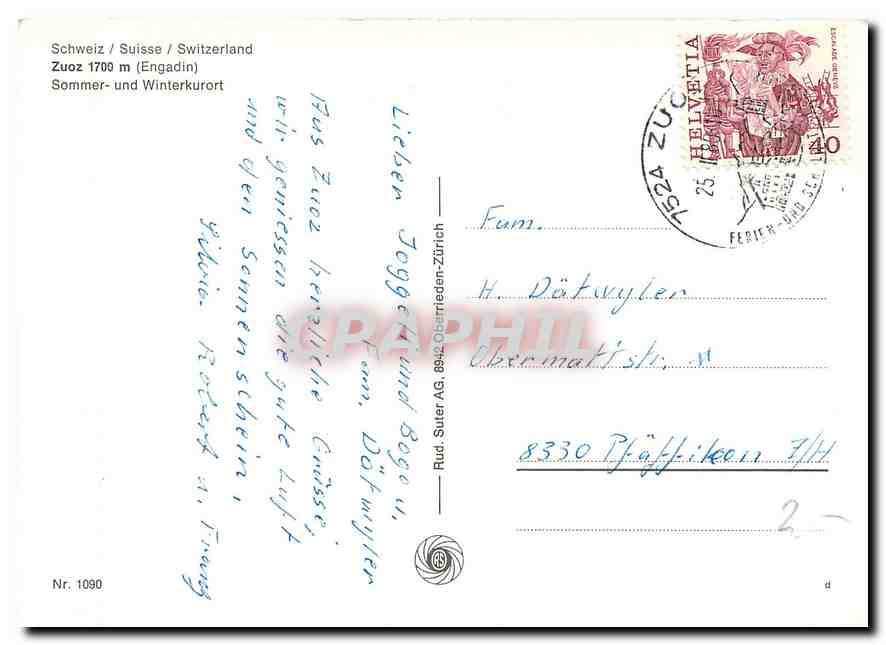 Schweiz / Suisse / Switzerland
Zuoz 1700 m (Engadin)
Sommer- und Winterkurort
HELVETIA
ESCALADE GENÈVE
40
7524 ZUO
25.
FERIEN- UND
Lieber Joggeli und Gogo u.
Fam. Dätwyler
Aus Zuoz herzliche Grüsse,
wir geniessen die gute Luft
und den Sonnenschein,
Silvia Robert u. Franz
Rud. Suter AG, 8942 Oberrieden-Zürich
Fam.
H. Dätwyler
Obermattstr.
8330 Pfäffikon Z/H
2.-
CPAPHIL
RS
Nr. 1090
d